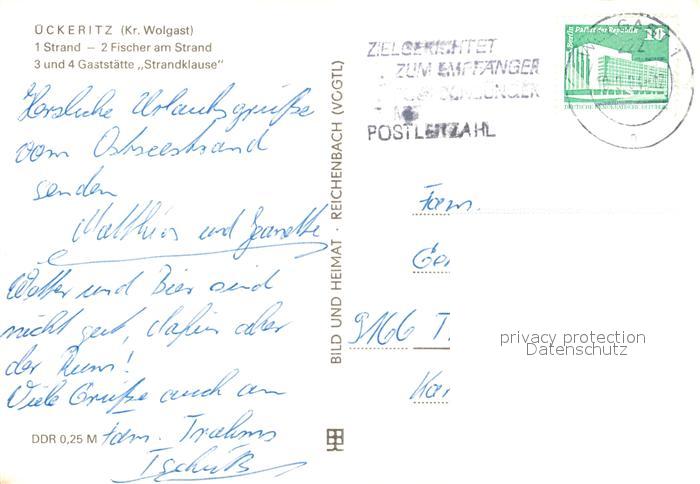 ÜCKERITZ (Kr. Wolgast)
1 Strand — 2 Fischer am Strand
3 und 4 Gaststätte „Strandklause"
Herzliche Urlaubsgrüße
vom Ostseestrand
senden
Matthias und Jeanette
Wetter und Bier sind
nicht gut, dafür aber
der Rum!
Viele Grüße auch an
Fam.
Tschüß
DDR 0,25 M
BILD UND HEIMAT · REICHENBACH (VOGTL)
ZIELGERICHTET
ZUM EMPFÄNGER
POSTLEITZAHL
Berlin Palast der Republik
DEUTSCHE DEMOKRATISCHE REPUBLIK
Fam.
9166 T.
privacy protection
Datenschutz